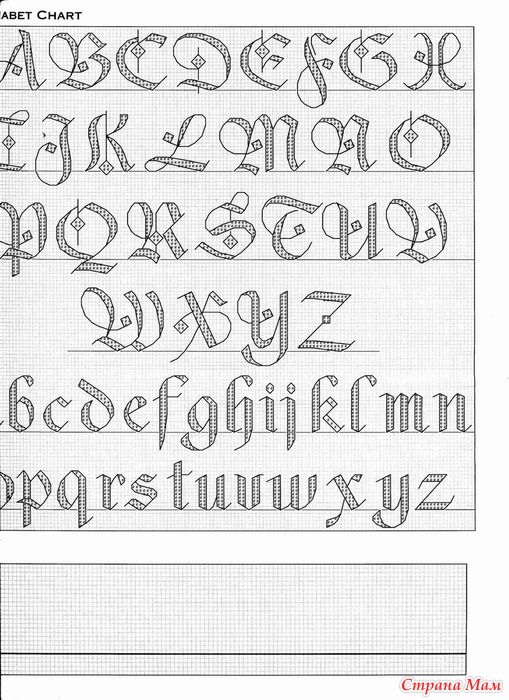 ABET CHART
A B C D E F G H
I J K L M N O
P Q R S T U V
W X Y Z
b c d e f g h i j k l m n
p q r s t u v w x y z
Страна Мам